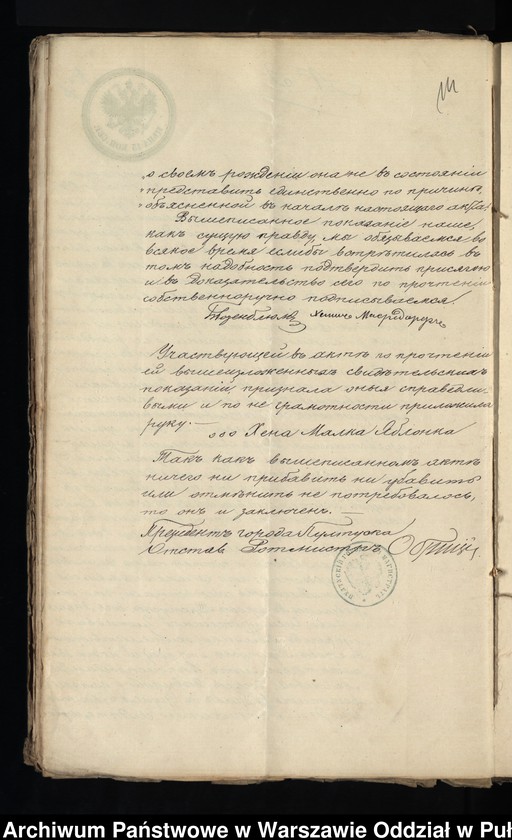 о своемъ рожденіи она не въ состояніи
представить единственно по причинѣ,
объясненной въ началѣ настоящаго акта.
Вышеписанное показаніе наше,
какъ сущую правду, мы обязываемся во
всякое время еслибы встрѣтилась въ
томъ надобность подтвердить присягою
и въ доказательство сего по прочтеніи
собственноручно подписываемся.
Розенблюмъ
Участвующей въ актѣ по прочтеніи
ей вышеизложенныхъ свидѣтельскихъ
показаній, признала оныя справедли-
выми и по не грамотности приложила
руку. —
ооо Хена Малка Яблонка
Такъ какъ вышеписанномъ актѣ
ничего ни прибавить ни убавить
или отмѣнить не потребовалось,
то онъ и заключенъ. —
Президентъ города Пултуска
Отстав. Ротмистръ
Archiwum Państwowe w Warszawie Oddział w Puł